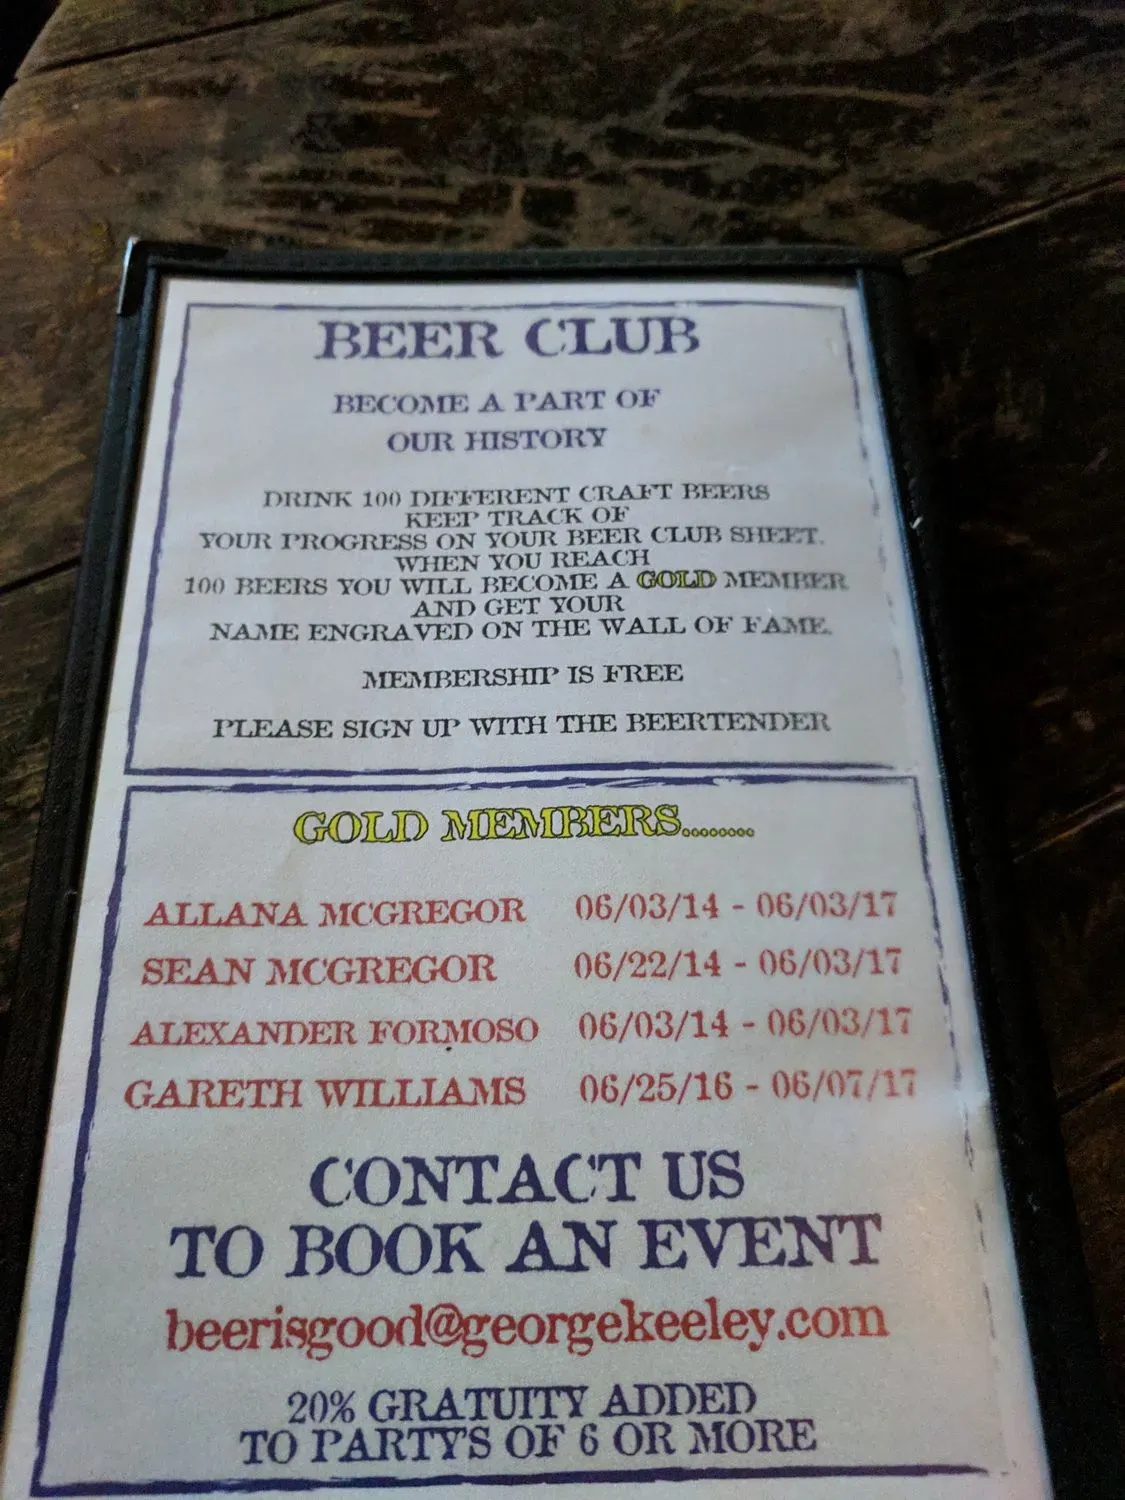 BEER CLUB
BECOME A PART OF
OUR HISTORY
DRINK 100 DIFFERENT CRAFT BEERS
KEEP TRACK OF
YOUR PROGRESS ON YOUR BEER CLUB SHEET.
WHEN YOU REACH
100 BEERS YOU WILL BECOME A GOLD MEMBER
AND GET YOUR
NAME ENGRAVED ON THE WALL OF FAME.
MEMBERSHIP IS FREE
PLEASE SIGN UP WITH THE BEERTENDER
GOLD MEMBERS........
ALLANA MCGREGOR 06/03/14 - 06/03/17
SEAN MCGREGOR 06/22/14 - 06/03/17
ALEXANDER FORMOSO 06/03/14 - 06/03/17
GARETH WILLIAMS 06/25/16 - 06/07/17
CONTACT US
TO BOOK AN EVENT
beerisgood@georgekeeley.com
20% GRATUITY ADDED
TO PARTY'S OF 6 OR MORE